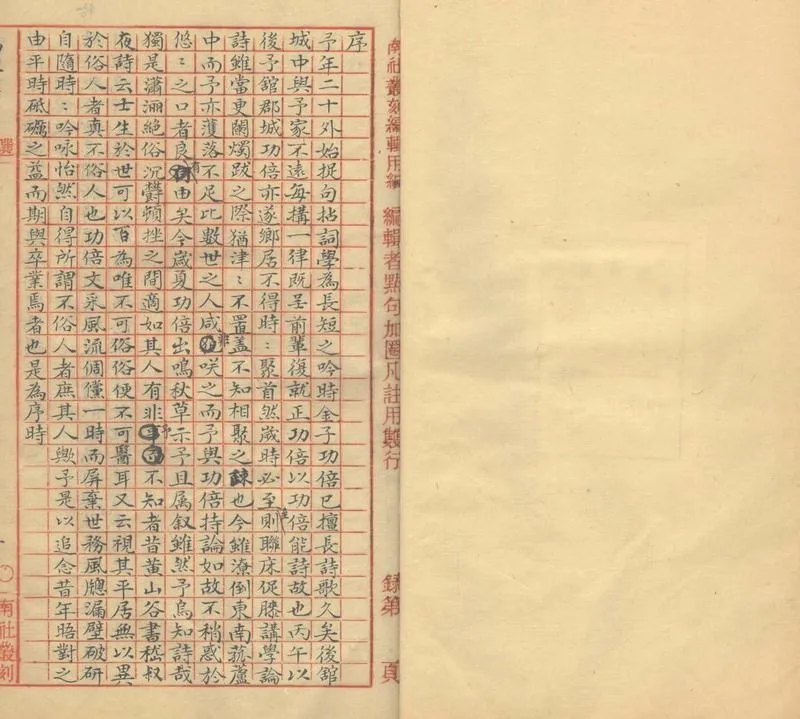 南社叢刻編輯用紙　編輯者點句加圈凡註用雙行　錄第　頁
序
予年二十外始捉句拈詞學為長短之吟時金子功倍已擅長詩歌久矣後舘
城中與予家不遠每搆一律既呈前輩復就正功倍以功倍能詩故也丙午以
後予舘郡城功倍亦遂鄉居不得時〻聚首然歲時必至則聯床促膝講學論
詩雖當更闌燭跋之際猶津〻不置蓋不知相聚之疎也今雖潦倒東南菰蘆
中而予亦薄落不足比數世之人咸非咲之而予與功倍持論如故不稍惑於
悠〻之口者良有由矣今歲夏功倍出鳴秋草示予且属叙雖然予烏知詩哉
獨是瀟洒絕俗沉鬱頓挫之間適如其人有非予不知者昔黃山谷書嵇叔
夜詩云士生於世可以百為唯不可俗俗便不可醫耳又云視其平居無以異
於俗人者真不俗人也功倍文采風流倜儻一時而屏棄世務風牕漏壁破研
自隨時〻吟咏怡然自得所謂不俗人者庶其人歟予是以追念昔年晤對之
由平時砥礪之益而期與卒業焉者也是為序時
選
南社叢刻